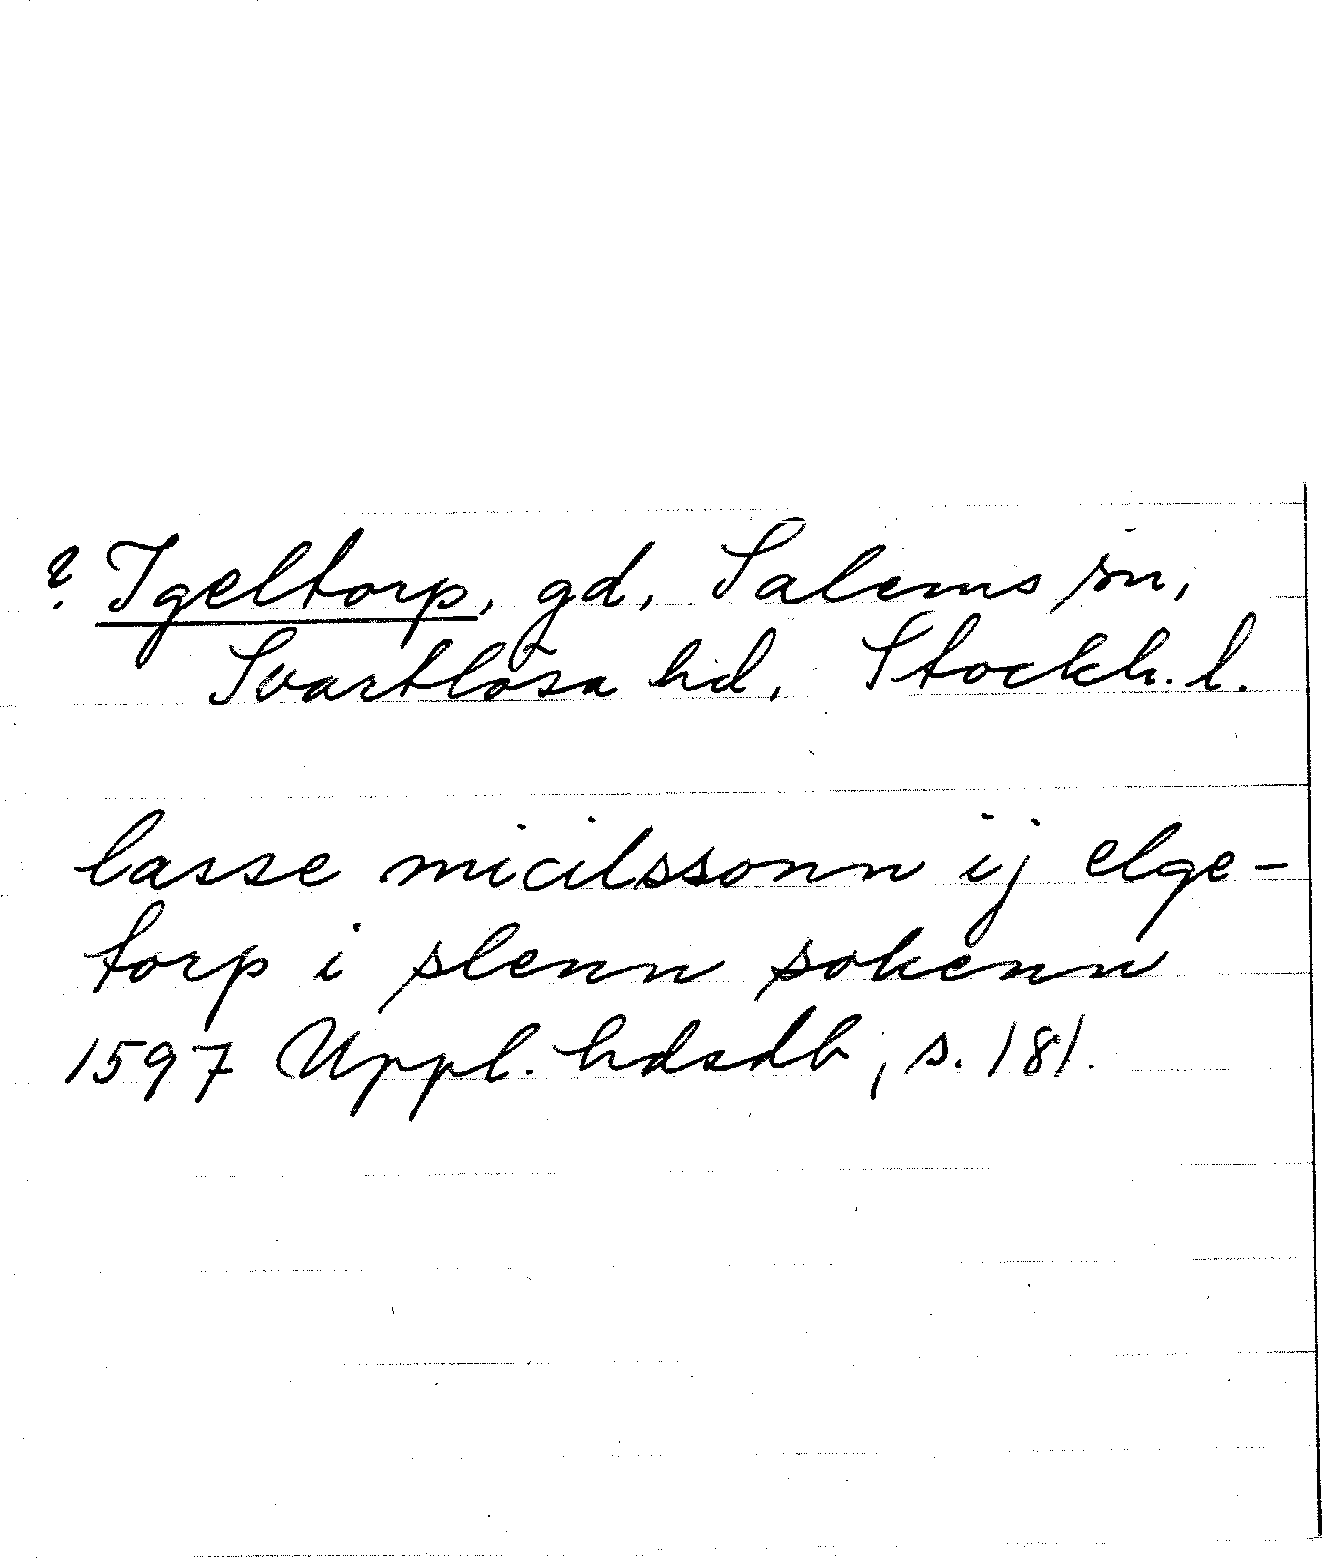 ? Igeltorp, gd, Salems sn,
Svartlösa hd, Stockh. l.
lasse micilssonn ij elge-
torp i slenn sokenn
1597 Uppl. hdsdb, s. 181.